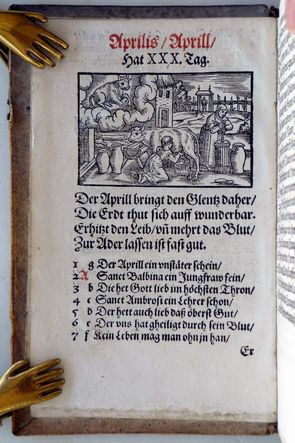 Aprilis/ Aprill/
Hat XXX. Tag.
Der Aprill bringt den Glentz daher/
Die Erdt thut sich auff wunderbar.
Erhitzt den Leib/ vñ mehrt das Blut/
Zur Ader lassen ist fast gut.
1 g Der Aprill ein vnstäter schein/
2 A Sanct Balbina ein Jungfraw fein/
3 b Die het Gott lieb im höchsten Thron/
4 c Sanct Ambrosi ein Lehrer schon/
5 d Der hett auch lieb daß öberst Gut/
6 e Der vns hat gheiligt durch sein Blut/
7 f Kein Leben mag man ohn jn han/
Er